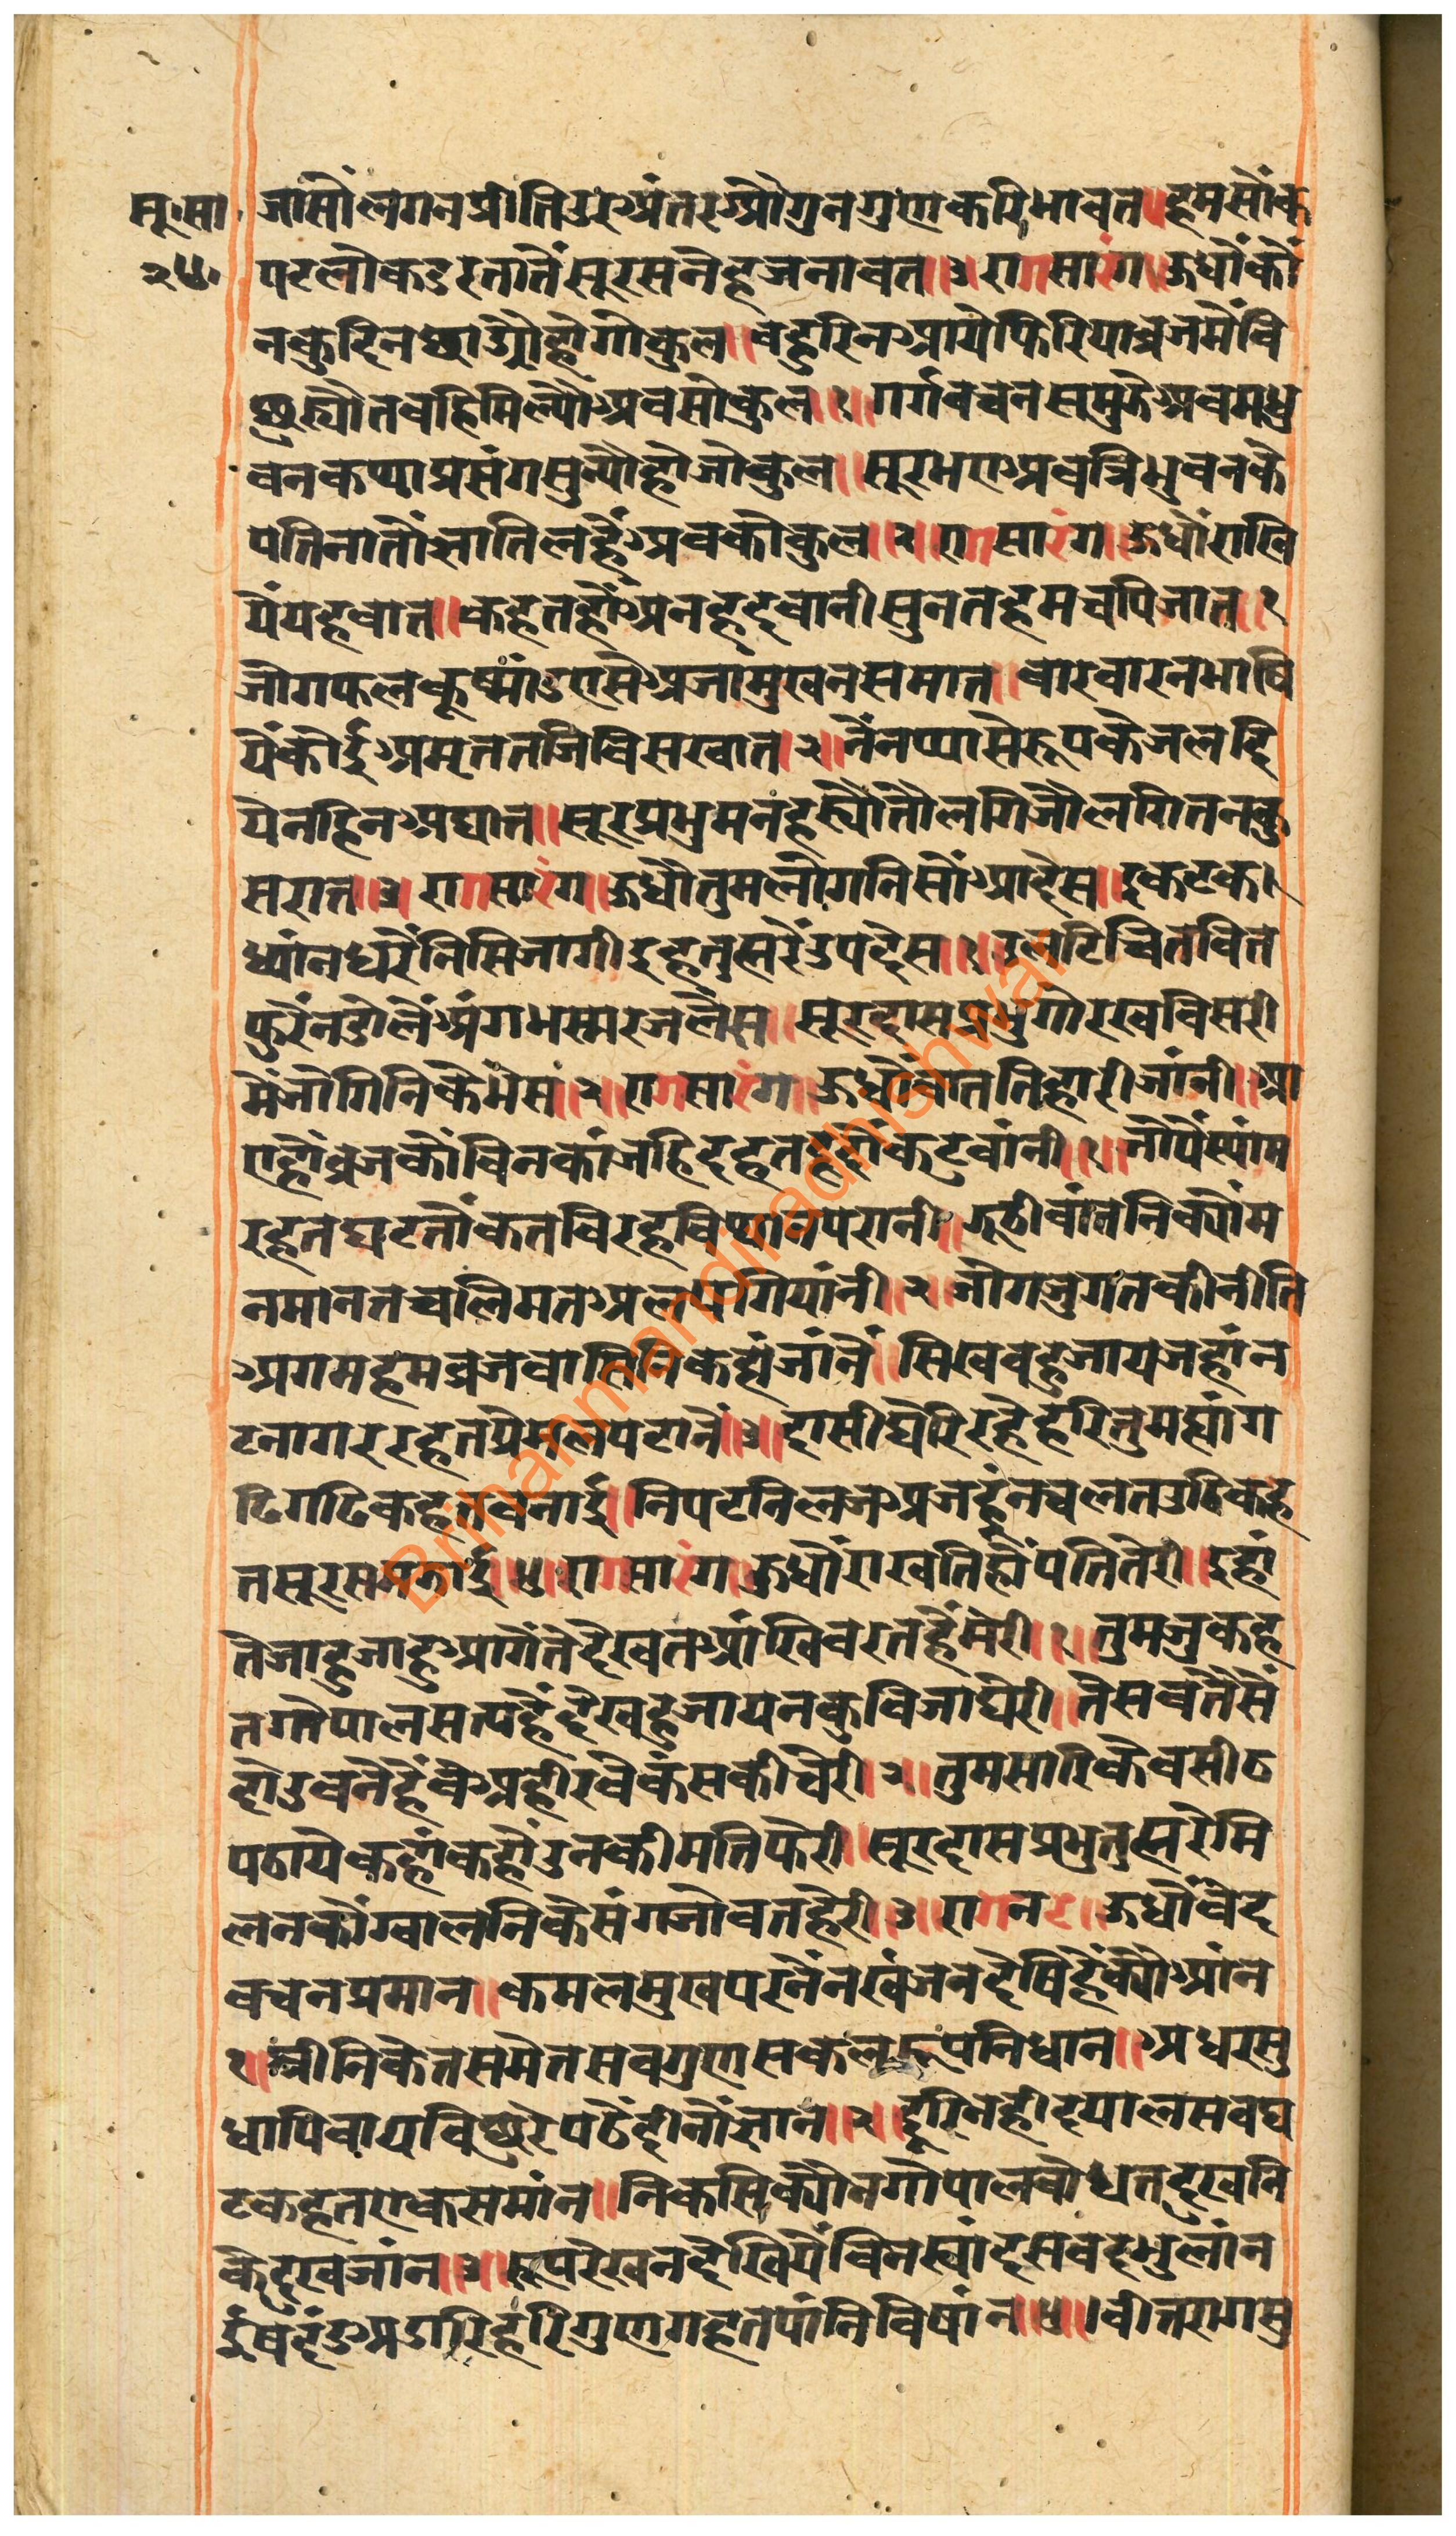 सू॰सा॰ जासौंलगनप्रीतिउरअंतरऔगुनगुणकरिभावत॥हमसौंक
२५॰ पटलोकडरतातैंसूरसनेहजनावत॥३॥रागसारंग॥ऊधौंकौं
नकुदिनछाड्यौहोगोकुल॥बहुरिनआयेफिरियाब्रजमैंवि
छुर्‍यौतबहिमिल्यौअबसोकुल॥१॥गर्गवचनसमुझेअबमधु
बनकथाप्रसंगसुन्यौहोजोकुल॥सूरभएअबत्रिभुवनके
पतिनातोंज्ञातिलहैंअबकोकुल॥२॥रागसारंग॥ऊधौंराखि
येंयहबात॥कहतहौंअनहदबानीसुनतहमचपिजात॥१
जोगफलकूष्मांडऐसेअजामुखनसमात॥बारबारनभाषि
येंकोईअमृततजिविसखात॥२॥नैंनप्यासेरूपकेजलदि
येनहिनअघात॥सूरप्रभुमनहर्‍यौतौलगिजौलगितनकु
सरात॥३॥रागसारंग॥ऊधौतुमलोगनिसौंआदेस॥इकटक।
ध्यांनधरैंनिसिजागीइहतुह्मरेंउपदेस॥१॥उलटिचितवित
फुरैंनडोलैंअंगभस्मरजलेस॥सूरदासप्रभुगोरखविसरी
मेंजोगिनिकेभेस॥२॥रागसारंग॥ऊधौंबाततिहारीजांनी॥आ
एहौंब्रजकौंबिनकांजहिदहतहृदौंकटुबांनी॥१॥जोपैंस्यांम
रहतघटतौंकतविरहविथानपरानी॥झूठीबांतनिक्यौंम
नमानतचलिमतअलपगियांनी॥२॥जोगजुगतकीनीति
अगमहमब्रजवासिनिकहाजांनैं॥सिखवहुजायजहांन
टनागररहतप्रेमलपटानैं॥३॥दासीघेरिरहेहरितुमह्यांग
ढिगढिकहतबनाई॥निपटनिलजअजहूंनचलतउठिकह
तसूरसमझाई॥४॥रागसारंग॥ऊधौंराखतिहौंपतितेरी॥इहां
तेजाहुजाहुआगैंतेदेखतआंखिबरतहैंमेरी॥१॥तुमजुकह
तगोपालसत्यहैंदेखहुजायनकुबिजाघेरी॥तेसबतैसें
दोउबनेहैंवेअहीरवेकंसकीचेरी॥२॥तुमसारिकेबसीठ
पठायेकहांकहौंउनकीमतिफेरी॥सूरदासप्रभुतुह्मरेमि
लनकौंग्वालनिकेसंगजोवतहेरी॥३॥रागनट॥ऊधौंबेद
बचनप्रमान॥कमलमुखपरनैंनखंजनदेषिहैंक्यौआंन
१॥श्रीनिकेतसमेतसबगुणसकलरूपनिधान॥अधरसु
धापिवायविछुरेपठैदीनौंज्ञान॥२॥दूरिनहीदयालसबघ
टकहतएकसमांन॥निकसिक्यौंनगोपालबोधतदुखनि
केदुखजांन॥३॥रूपरेखनदेखियेंबिनस्वांदसबदभुलांन
ईंषदंडअडारिहरिगुणगहतपांनिबिषांन॥४॥।बीतरागसु